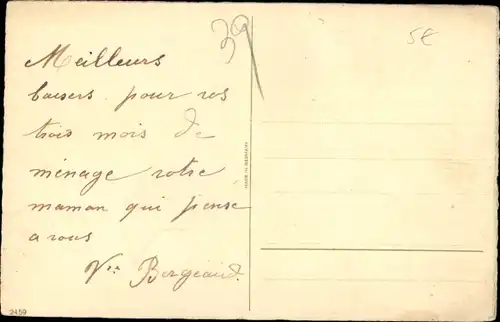 39
5€
Meilleurs
baisers pour vos
trois mois de
ménage votre
maman qui pense
a vous
Vve Bergeaud.
MADE IN GERMANY
2459